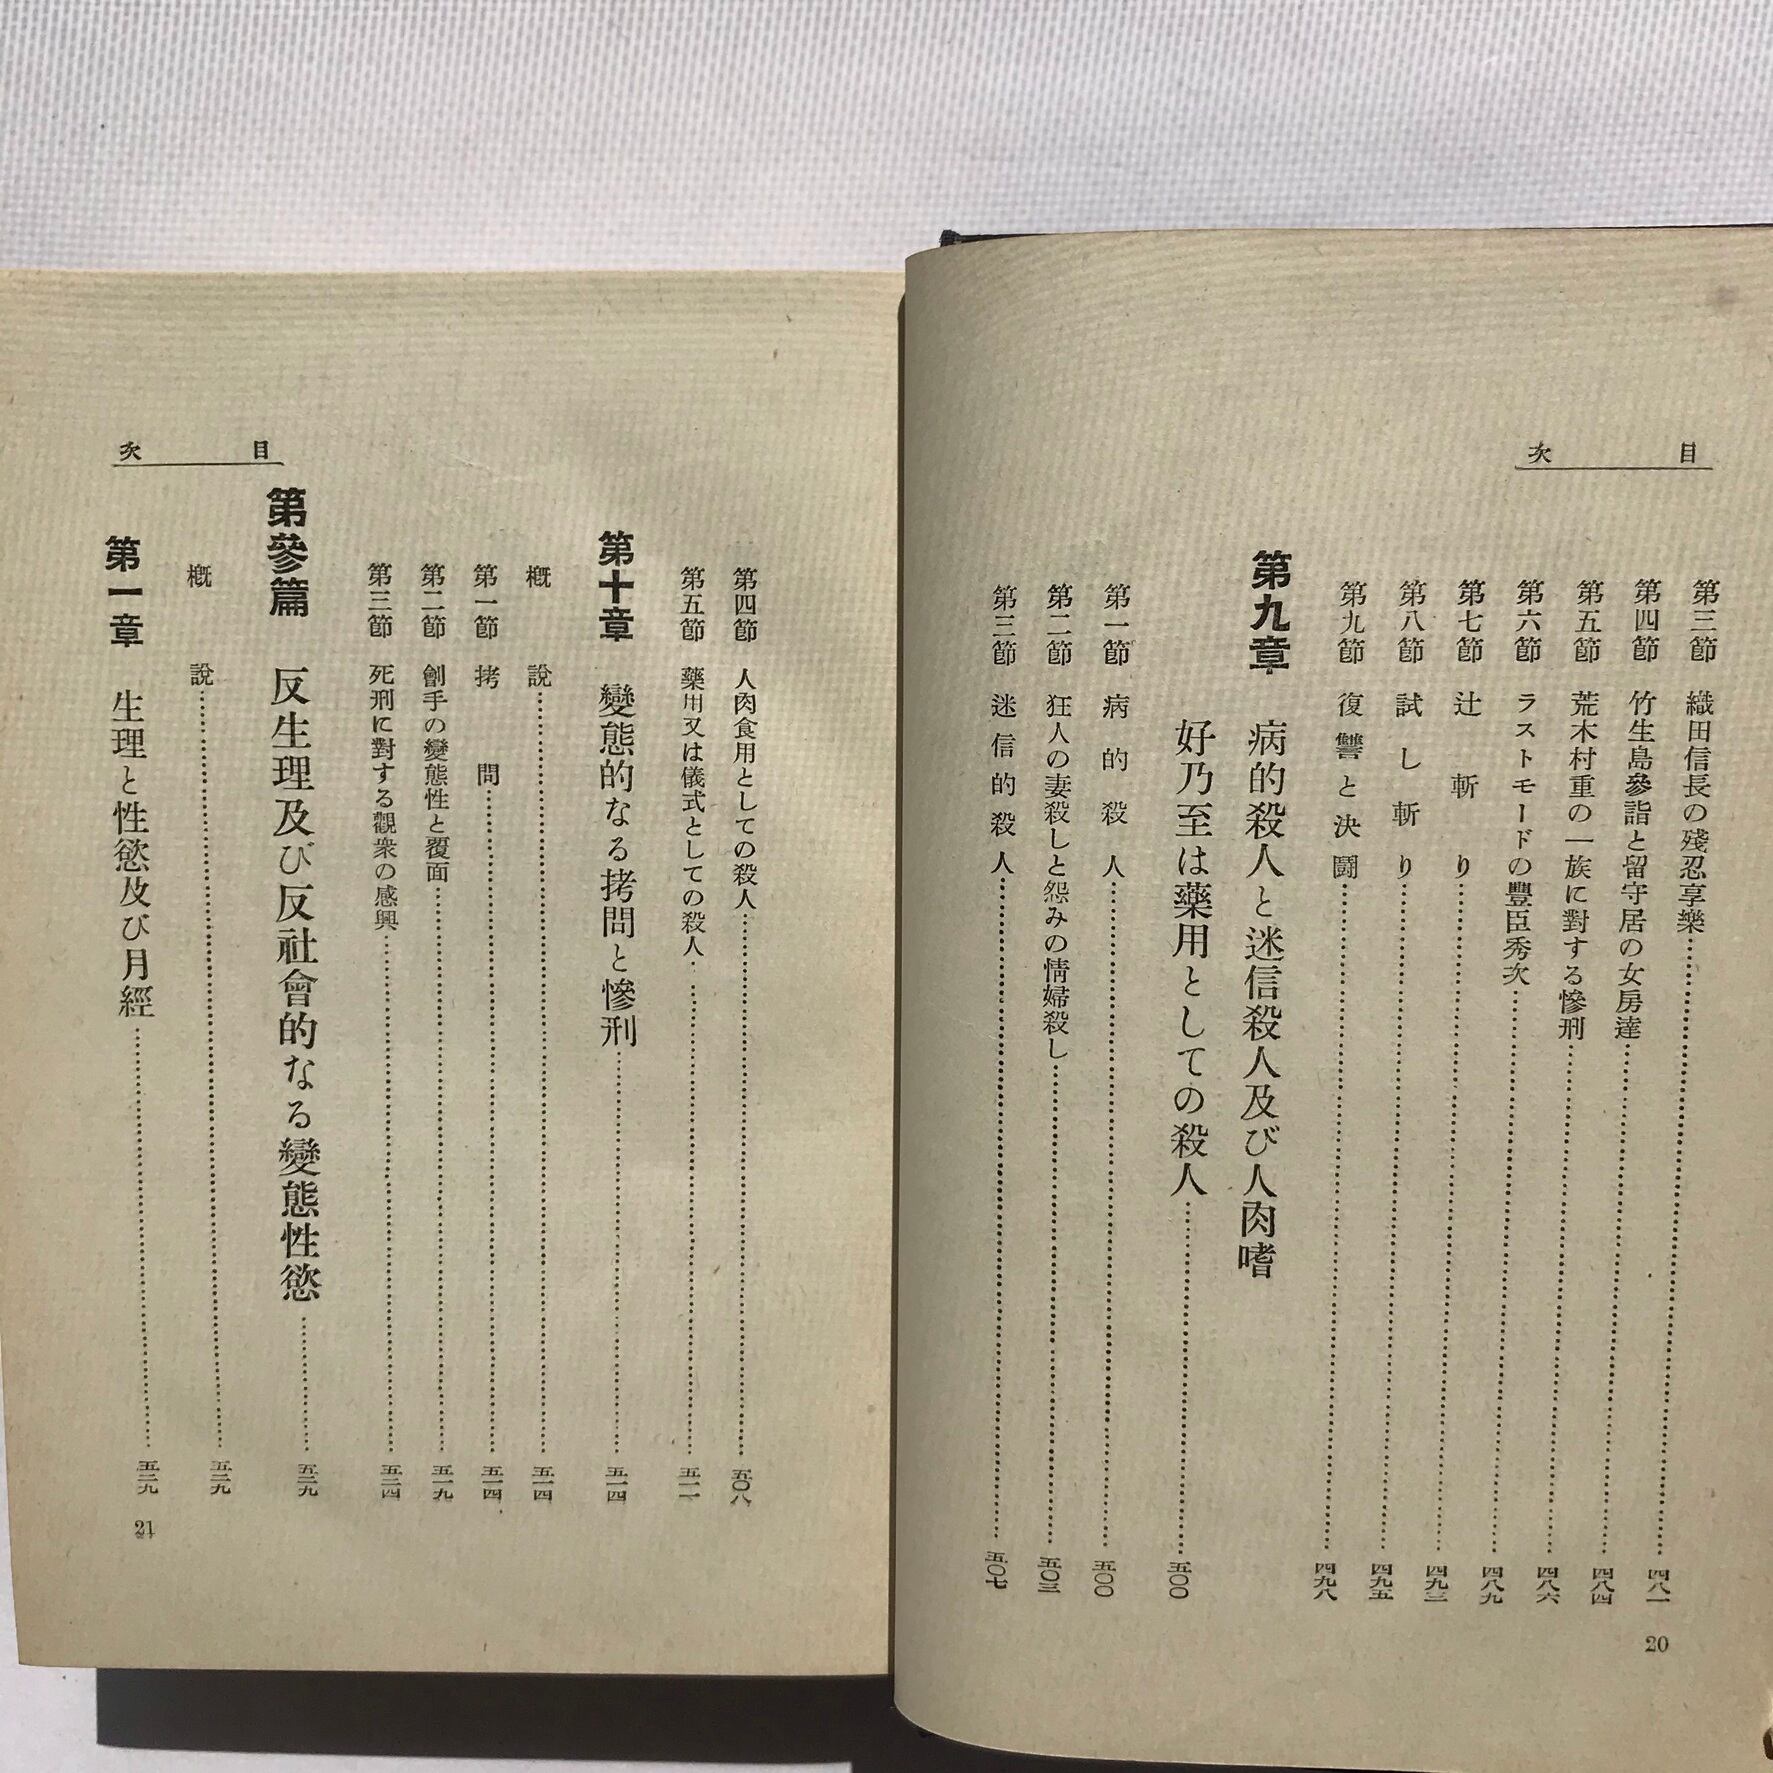 目次
第三節 織田信長の殘忍享樂……四八一
第四節 竹生島參詣と留守居の女房達……四八四
第五節 荒木村重の一族に對する慘刑……四八六
第六節 ラストモードの豐臣秀次……四八九
第七節 辻斬り……四九三
第八節 試し斬り……四九五
第九節 復讐と決鬪……四九八
第九章 病的殺人と迷信殺人及び人肉嗜
好乃至は藥用としての殺人……五〇〇
第一節 病的殺人……五〇〇
第二節 狂人の妻殺しと怨みの情婦殺し……五〇三
第三節 迷信的殺人……五〇七
20
目次
第四節 人肉食用としての殺人……五〇八
第五節 藥用又は儀式としての殺人……五一一
第十章 變態的なる拷問と慘刑……五一四
概說……五一四
第一節 拷問……五一四
第二節 劊手の變態性と覆面……五一九
第三節 死刑に對する觀衆の感興……五二四
第參篇 反生理及び反社會的なる變態性慾……五二九
概說……五二九
第一章 生理と性慾及び月經……五二九
21